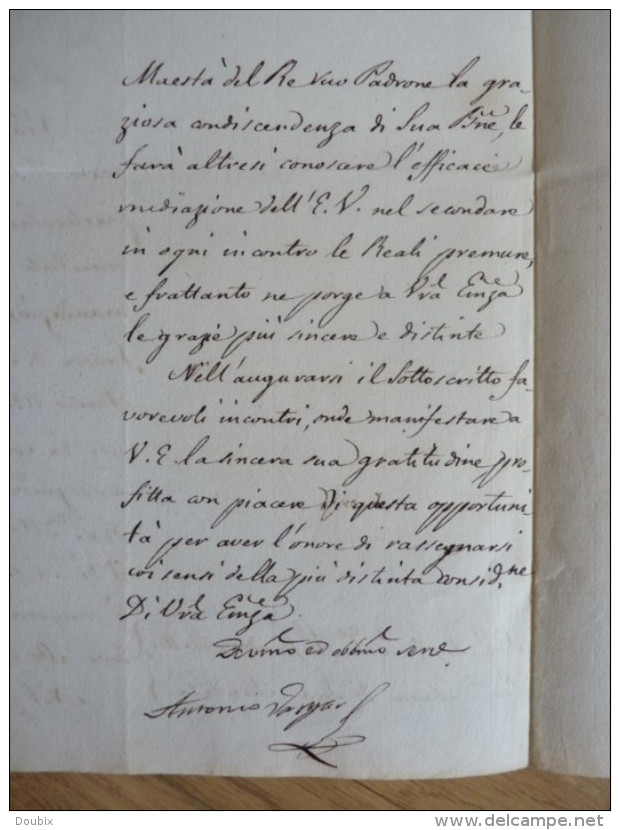 Maestà del Re suo Padrone la gra-
ziosa condiscendenza di Sua Bne, le
farà altresi conoscere l'efficace
mediazione dell'E.V. nel secondare
in ogni incontro le Reali premure,
e frattanto ne porge a Vra Emza
le grazie più sincere e distinte
Nell'augurarsi il Sottoscritto fa-
vorevoli incontri, onde manifestare a
V.E. la sincera sua gratitudine pro-
fitta con piacere di questa opportuni-
tà per aver l'onore di rassegnarsi
coi sensi della più distinta considne
Di Vra Emza
Devmo ed obbmo Serve
Antonio Vargas
Doubix
www.delcampe.net